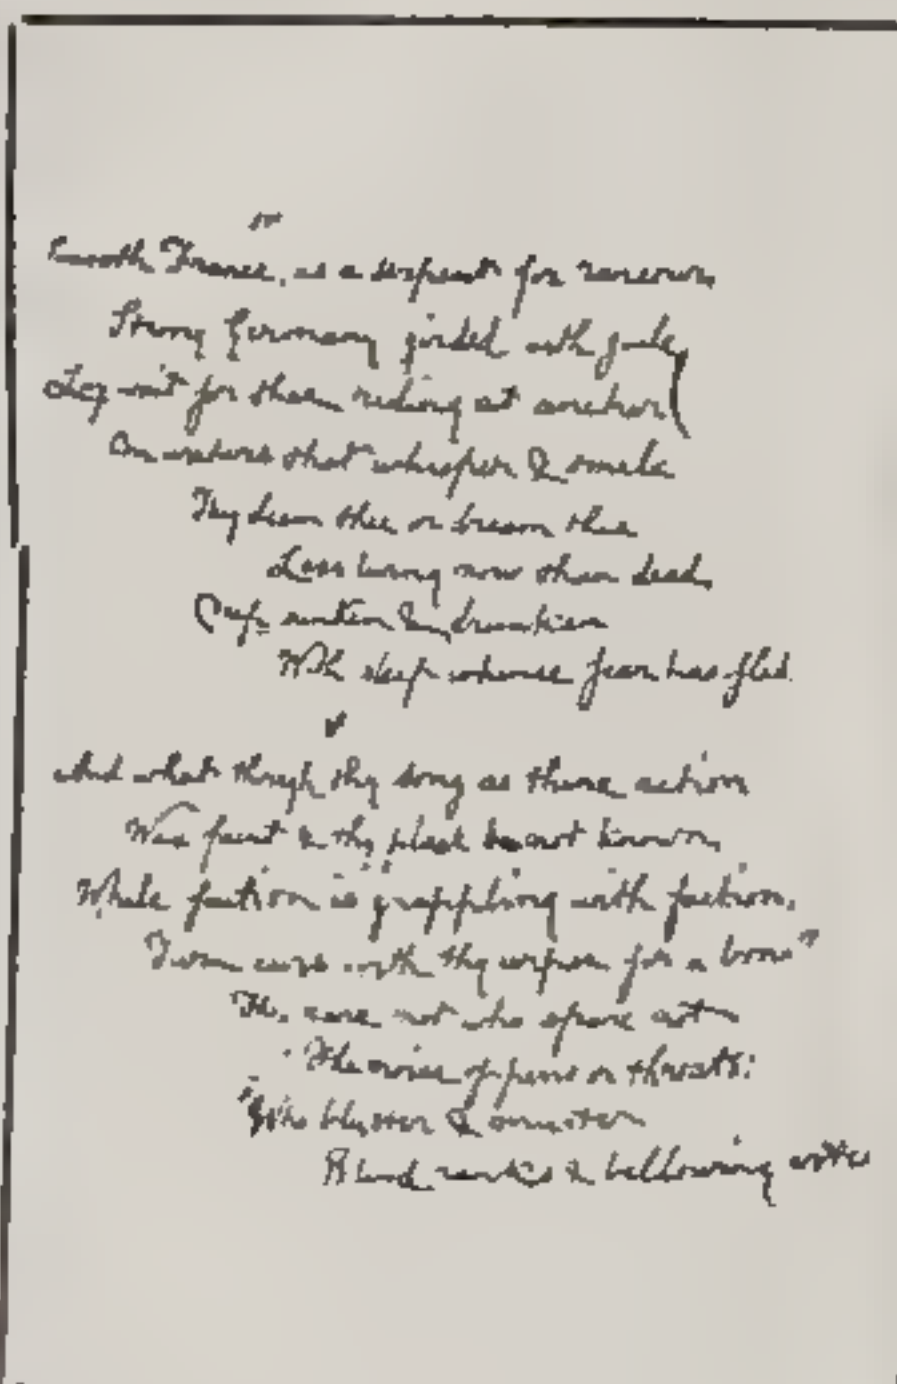 IV
Smooth France, as a serpent for rancour,
Strong Germany girded with guile,
Lay wait for thee riding at anchor
On waters that whisper & smile
They deem thee or dream thee
Less living now than dead,
Deep sunken & drunken
With sleep whence fear has fled.
V
And what though thy song as thine action
Wax faint & thy place be not known,
While faction is grappling with faction,
Twin curs with thy corpse for a bone"
They care not who spare not
The noise of pens or throats;
Who bluster & muster
Blind ranks & bellowing votes